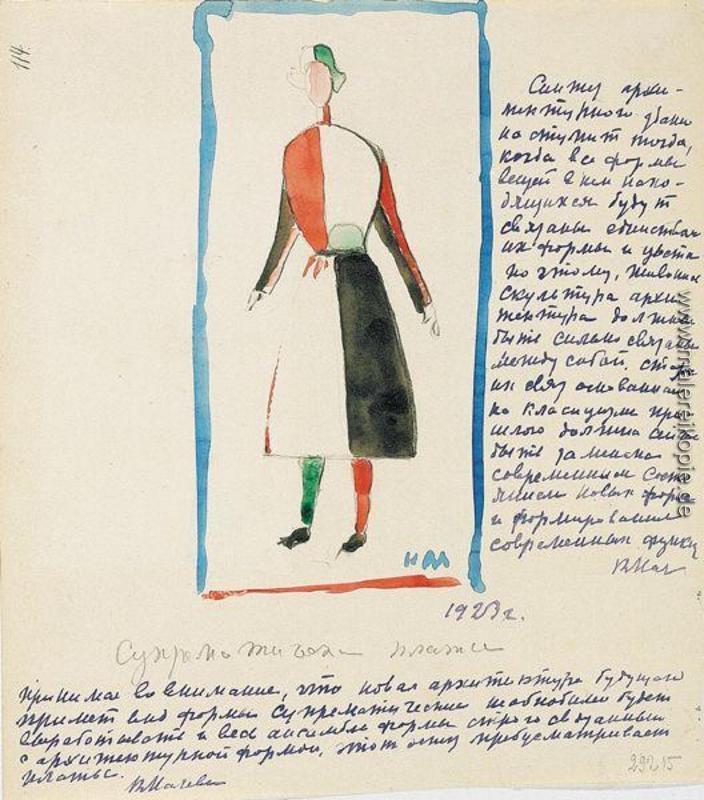 114.
Синтез архи-
тектурного здания
наступит тогда,
когда все формы
вещей в нем нахо-
дящихся будут
связаны единством
их формы и цвета
по этому, живопись
скульптура архи
тектура должна
быть сильно связаны
между собой.
их связь основанная
на класицизме про
шлого должна
быть заменена
современным
новых форм
и формирования
современных функц
КМал
НМ
1923 г.
Супрематическ платье
принимая во внимание, что новая архитектура будущего
примет вид формы Супрематические необходимо будет
выработывать и весь ансамбль формы строго связанный
с архитектурной формой, этот эскиз предусматривает
платье.
КМалевич
29215
www.malereikopie.de